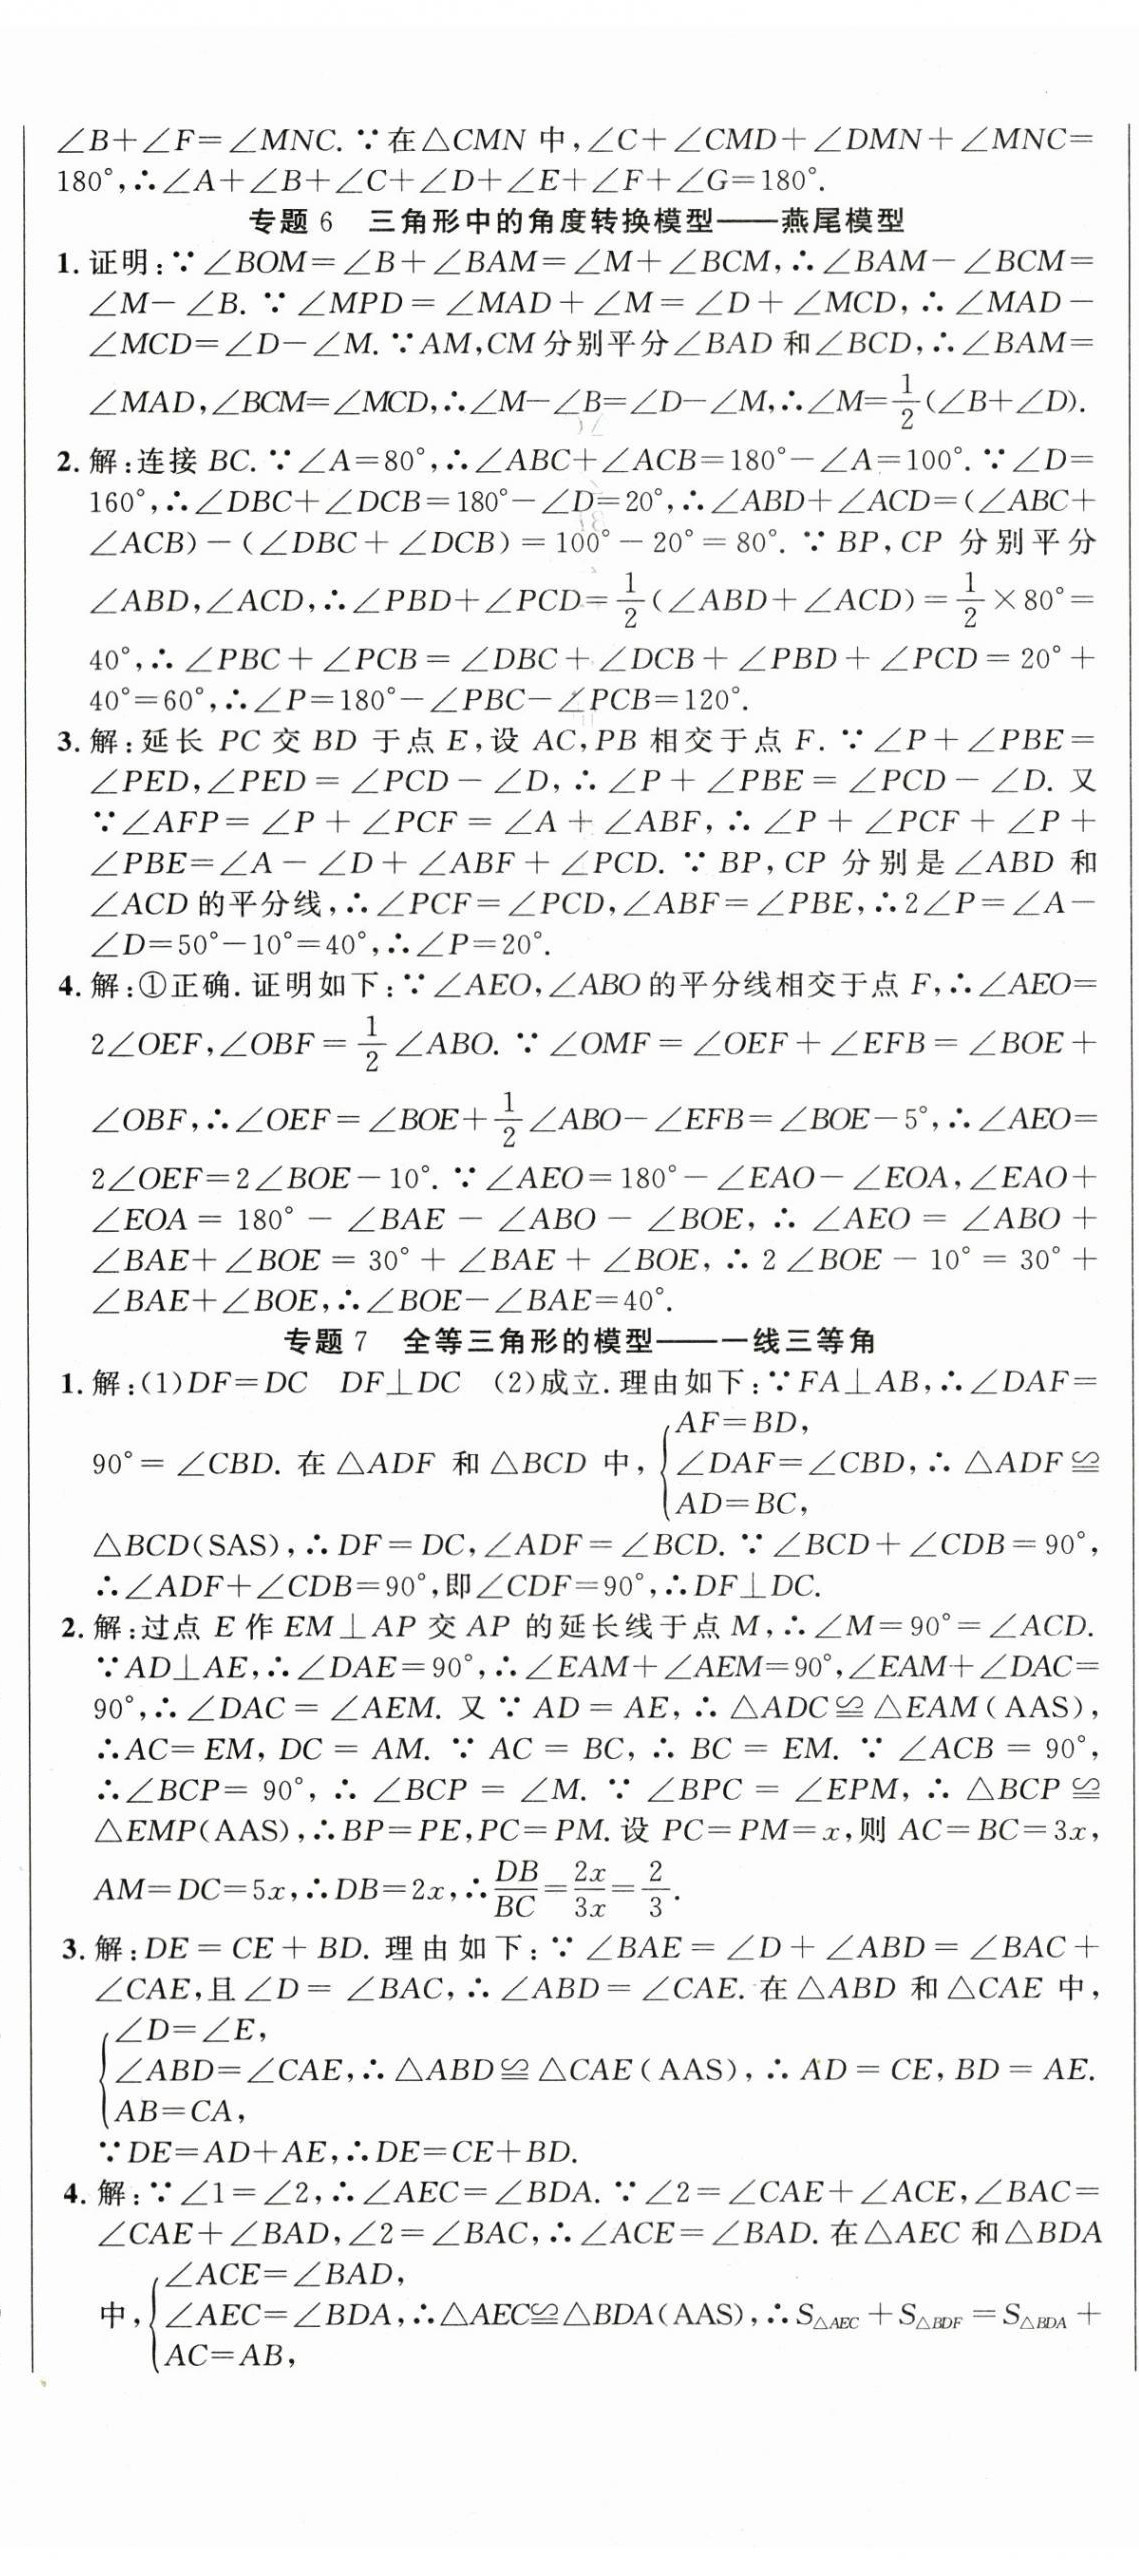 ∠B+∠F=∠MNC. ∵在△CMN 中,∠C+∠CMD+∠DMN+∠MNC=
180°,∴∠A+∠B+∠C+∠D+∠E+∠F+∠G=180°.
专题 6 三角形中的角度转换模型——燕尾模型
1. 证明:∵∠BOM=∠B+∠BAM=∠M+∠BCM,∴∠BAM-∠BCM=
∠M-∠B. ∵∠MPD=∠MAD+∠M=∠D+∠MCD,∴∠MAD-
∠MCD=∠D-∠M. ∵AM,CM 分别平分∠BAD 和∠BCD,∴∠BAM=
∠MAD,∠BCM=∠MCD,∴∠M-∠B=∠D-∠M,∴∠M=1/2(∠B+∠D).
2. 解:连接 BC. ∵∠A=80°,∴∠ABC+∠ACB=180°-∠A=100°. ∵∠D=
160°,∴∠DBC+∠DCB=180°-∠D=20°,∴∠ABD+∠ACD=(∠ABC+
∠ACB)-(∠DBC+∠DCB)=100°-20°=80°. ∵BP,CP 分别平分
∠ABD,∠ACD,∴∠PBD+∠PCD=1/2(∠ABD+∠ACD)=1/2×80°=
40°,∴∠PBC+∠PCB=∠DBC+∠DCB+∠PBD+∠PCD=20°+
40°=60°,∴∠P=180°-∠PBC-∠PCB=120°.
3. 解:延长 PC 交 BD 于点 E,设 AC,PB 相交于点 F. ∵∠P+∠PBE=
∠PED,∠PED=∠PCD-∠D,∴∠P+∠PBE=∠PCD-∠D. 又
∵∠AFP=∠P+∠PCF=∠A+∠ABF,∴∠P+∠PCF+∠P+
∠PBE=∠A-∠D+∠ABF+∠PCD. ∵BP,CP 分别是∠ABD 和
∠ACD 的平分线,∴∠PCF=∠PCD,∠ABF=∠PBE,∴2∠P=∠A-
∠D=50°-10°=40°,∴∠P=20°.
4. 解:①正确. 证明如下:∵∠AEO,∠ABO 的平分线相交于点 F,∴∠AEO=
2∠OEF,∠OBF=1/2∠ABO. ∵∠OMF=∠OEF+∠EFB=∠BOE+
∠OBF,∴∠OEF=∠BOE+1/2∠ABO-∠EFB=∠BOE-5°,∴∠AEO=
2∠OEF=2∠BOE-10°. ∵∠AEO=180°-∠EAO-∠EOA,∠EAO+
∠EOA=180°-∠BAE-∠ABO-∠BOE,∴∠AEO=∠ABO+
∠BAE+∠BOE=30°+∠BAE+∠BOE,∴2∠BOE-10°=30°+
∠BAE+∠BOE,∴∠BOE-∠BAE=40°.
专题 7 全等三角形的模型——一线三等角
1. 解:(1)DF=DC DF⊥DC (2)成立. 理由如下:∵FA⊥AB,∴∠DAF=
AF=BD,
90°=∠CBD. 在△ADF 和△BCD 中,{∠DAF=∠CBD,∴△ADF≌
AD=BC,
△BCD(SAS),∴DF=DC,∠ADF=∠BCD. ∵∠BCD+∠CDB=90°,
∴∠ADF+∠CDB=90°,即∠CDF=90°,∴DF⊥DC.
2. 解:过点 E 作 EM⊥AP 交 AP 的延长线于点 M,∴∠M=90°=∠ACD.
∵AD⊥AE,∴∠DAE=90°,∴∠EAM+∠AEM=90°,∠EAM+∠DAC=
90°,∴∠DAC=∠AEM. 又∵AD=AE,∴△ADC≌△EAM(AAS),
∴AC=EM,DC=AM. ∵AC=BC,∴BC=EM. ∵∠ACB=90°,
∴∠BCP=90°,∴∠BCP=∠M. ∵∠BPC=∠EPM,∴△BCP≌
△EMP(AAS),∴BP=PE,PC=PM. 设 PC=PM=x,则 AC=BC=3x,
AM=DC=5x,∴DB=2x,∴DB/BC=2x/3x=2/3.
3. 解:DE=CE+BD. 理由如下:∵∠BAE=∠D+∠ABD=∠BAC+
∠CAE,且∠D=∠BAC,∴∠ABD=∠CAE. 在△ABD 和△CAE 中,
∠D=∠E,
{∠ABD=∠CAE,∴△ABD≌△CAE(AAS),∴AD=CE,BD=AE.
AB=CA,
∵DE=AD+AE,∴DE=CE+BD.
4. 解:∵∠1=∠2,∴∠AEC=∠BDA. ∵∠2=∠CAE+∠ACE,∠BAC=
∠CAE+∠BAD,∠2=∠BAC,∴∠ACE=∠BAD. 在△AEC 和△BDA
∠ACE=∠BAD,
中,{∠AEC=∠BDA,∴△AEC≌△BDA(AAS),∴S△AEC+S△BDF=S△BDA+
AC=AB,